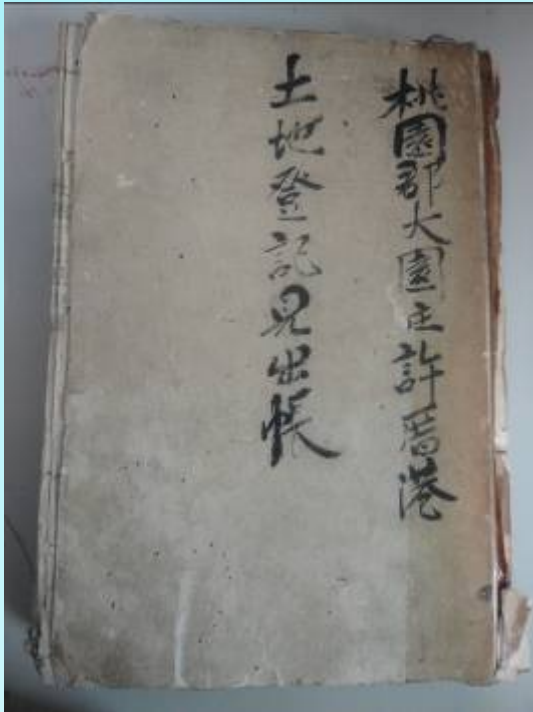 桃園郡大園庄許厝港
土地登記見出帳